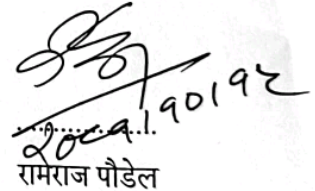 २०८१।१०।१२
..................
रामराज पौडेल